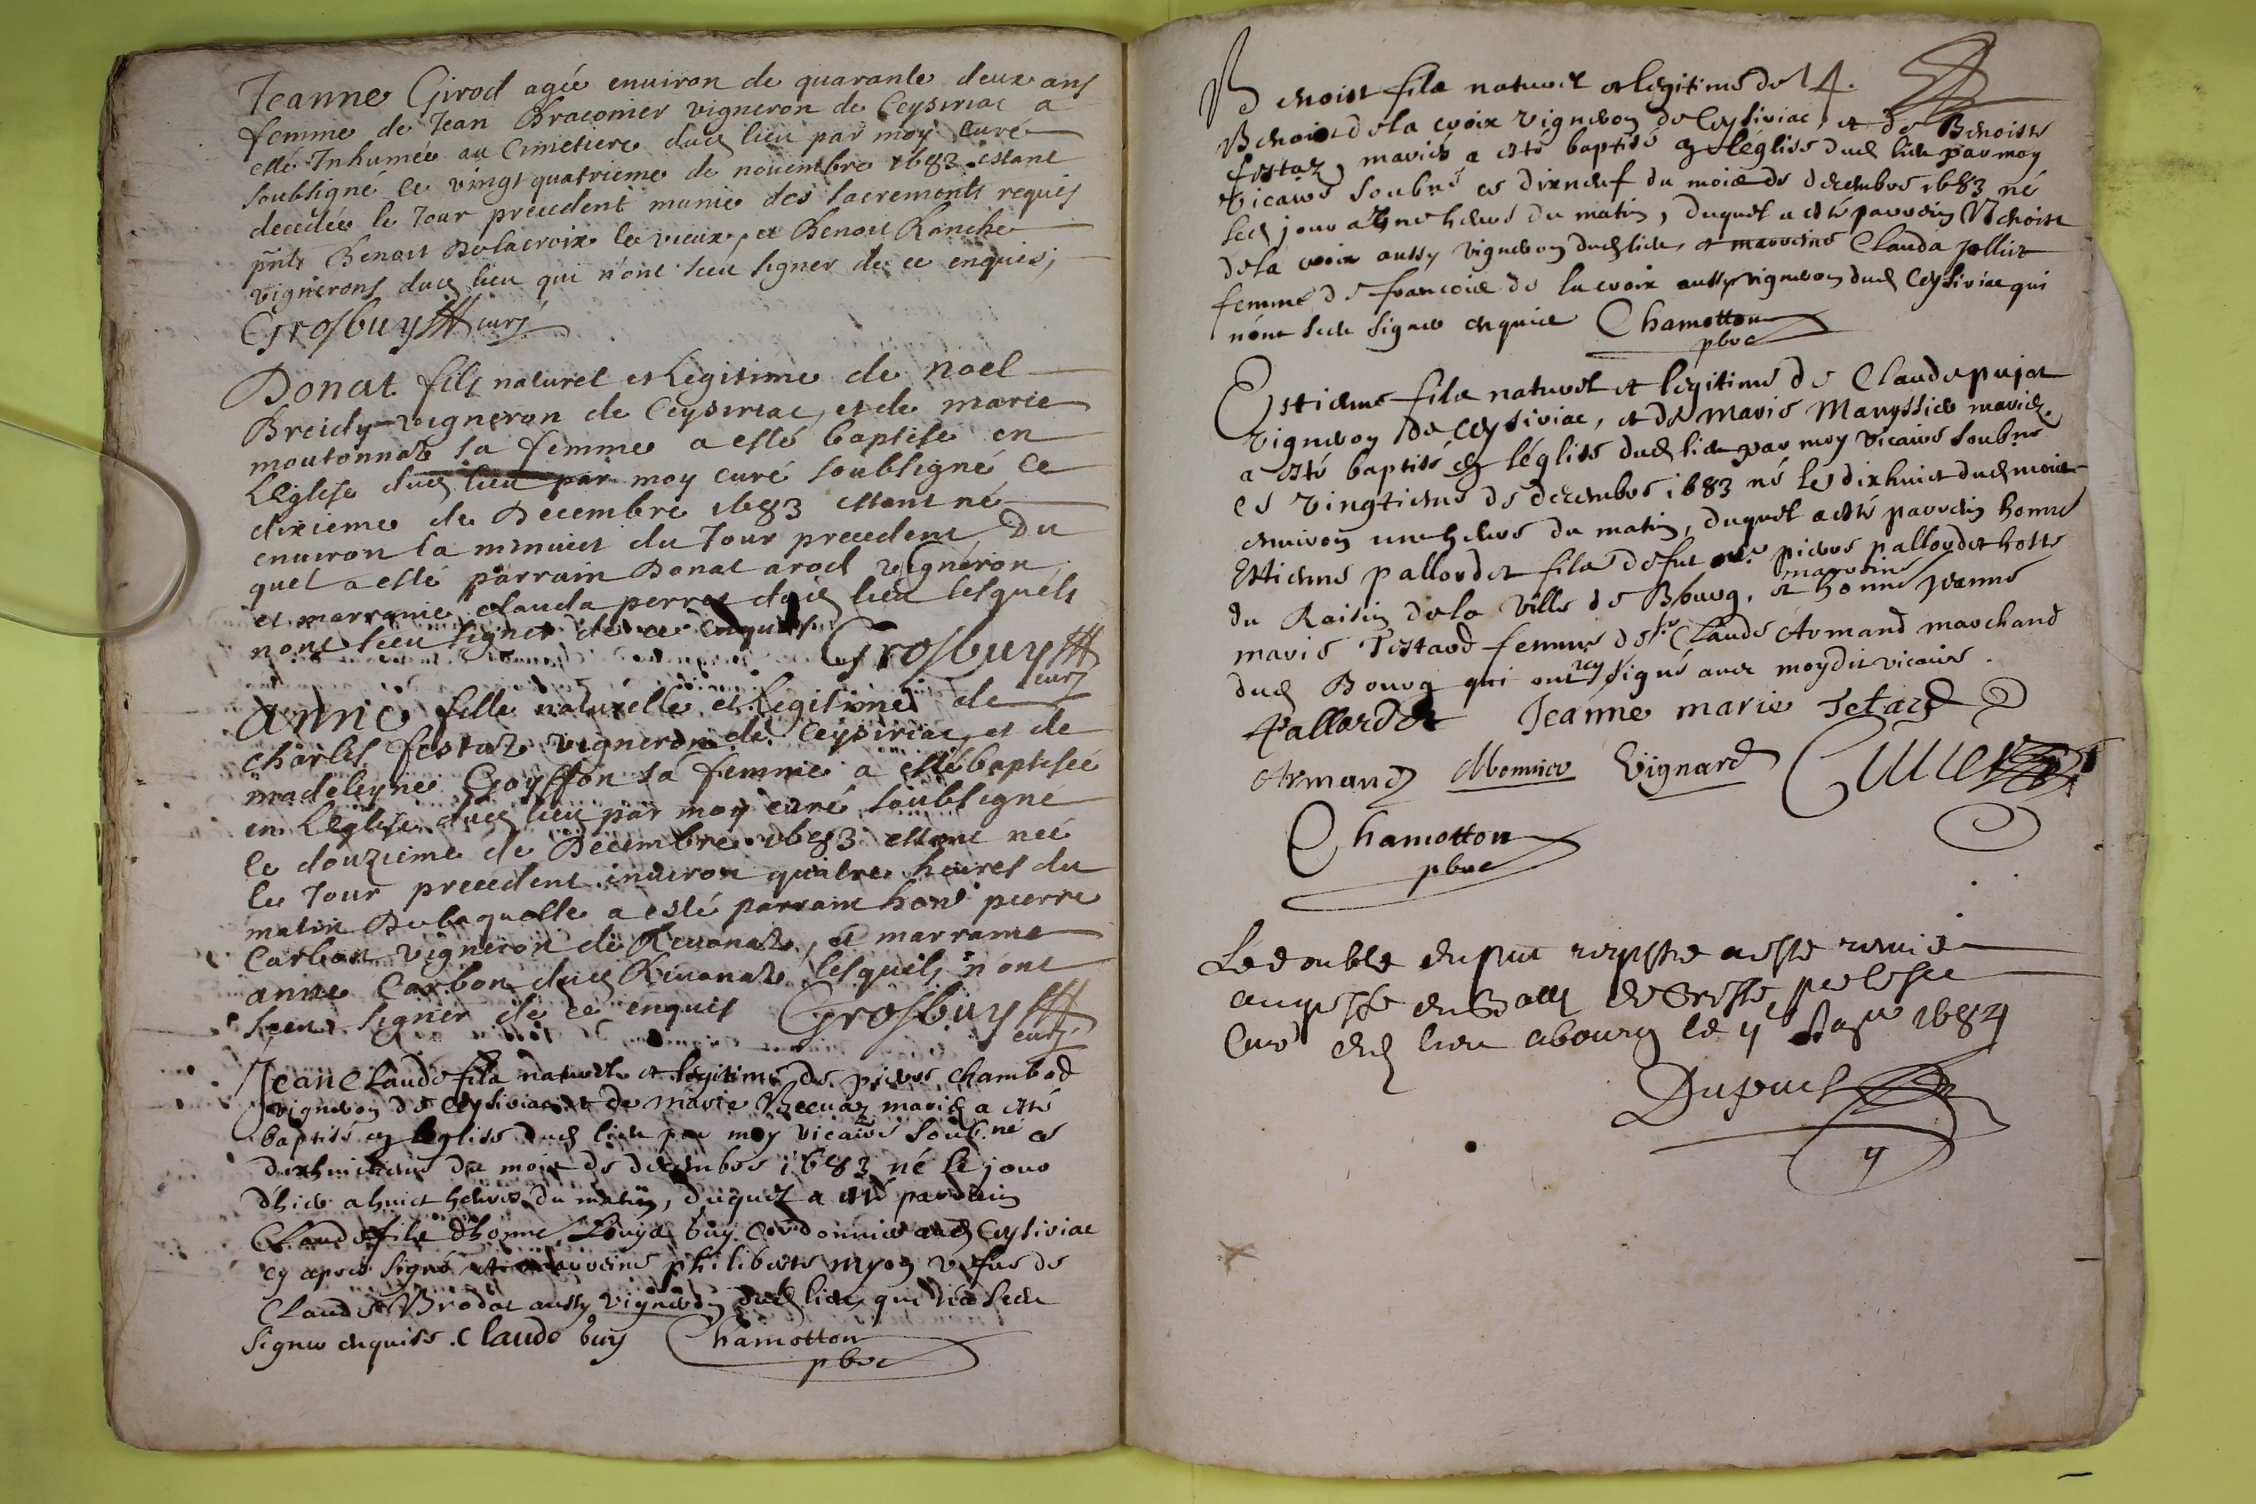 Jeanne Girod agée enuiron de quarante deux ans
femme de Jean Braconier vigneron de Ceysiriac a
esté Inhumée au Cimetiere dud lieu par moy Curé
soubsigné le vingt quatrieme de nouembre 1683 estant
decedée le Jour precedent munie des sacrements requis
pnts Benoit Delacroix le vieux, et Benoit Ranche
vignerons dud lieu qui n'ont sceu signer de ce enquis,
Grosbuy curé
Donat fils naturel et Legitime de noel
Breidy vigneron de Ceysiriac, et de marie
moutonnat sa femme a esté baptisé en
L'Eglise dud lieu par moy curé soubsigné ce
dixieme de Decembre 1683 estant né
enuiron la minuict du Jour precedent Du
quel a esté parrain Donat arod vigneron
et marraine Clauda perret dud lieu lesquels
n'ont sceu signer de ce enquis
Grosbuy
curé
anne fille naturelle et Legitime de
charles festaz vigneron de Ceysiriac, et de
madeleyne Goyffon sa femme a esté baptisée
en L'Eglise dud lieu par moy curé soubsigné
le douzieme de Decembre 1683 estant née
le Jour precedent enuiron quatre heures du
matin De laquelle a esté parrain hon pierre
Carbon vigneron de Reuonaz, et marraine
anne Carbon dud Reuonaz lesquels n'ont
sceu signer de ce enquis Grosbuy
curé
Jean Claude fils naturel et legitime de pierre chambod
vigneron de Ceysiriac et de marie Becuaz mariés a esté
baptisé en leglise dud lieu par moy vicaire soub.né ce
dixhuictieme du mois de decembre 1683 né le jour
dhier a huict heures du matin, duquel a esté parrain
Claude fils dhonne Louys buy cordonnier aud Ceysiriac
cy apres signé et marraine philiberte myon vefue de
Claude Brodat aussy vigneron dud lieu qui n'a sceu
signer enquise. Claude buy Chamotton
pbre
Benoist fils naturel et legitime de 14.
Benoist de la croix vigneron de Ceysiriac, et de Benoiste
festaz mariés a esté baptisé en léglise dud lieu par moy
vicaire soubné ce dixneuf du mois de decembre 1683 né
led jour a une heure du matin, duquel a esté parrain Benoist
de la croix aussy vigneron dud lieu, et marraine Clauda jolliet
femme de francois de la croix aussy vigneron dud Ceysiriac qui
n'ont sceu signer enquis Chamotton
pbre
Estienne fils naturel et légitime de Claude pujat
vigneron de Ceysiriac, et de Marie Manyssier mariés
a esté baptisé en léglise dud lieu par moy vicaire soubné
ce vingtieme de decembre 1683 né le dixhuict dud mois
enuiron une heure du matin, duquel a esté parrain honné
Estienne pallordet fils de fut pierre pallordet hoste
du Raisin de la ville de Bourg, et marraine honné jeanne
marie Testard femme de sr Claude Armand marchand
dud Bourg qui ont icy signé auec moydit vicaire.
Pallordet Jeanne marie Tetard
Armand Monnier Vignard Cuuier
Chamotton
pbre
Le double du pnt registre a esté remis
au greffe du Ball de Bresse par le sr
Curé dud lieu a bourg le 1684
Dupuis